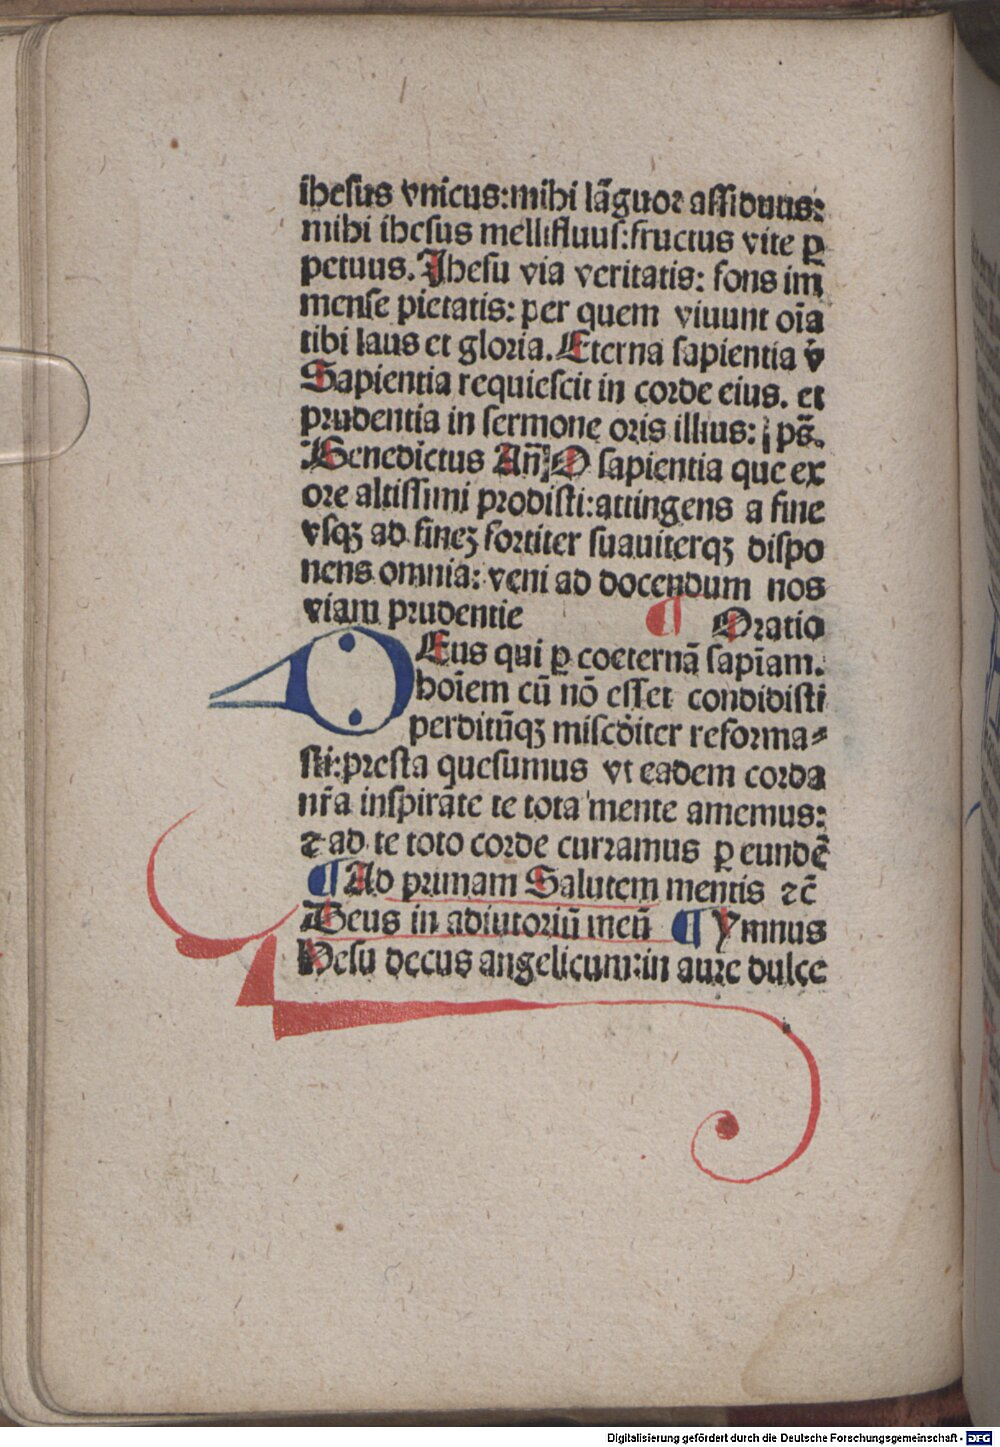 ihesus vnicus:mihi lāguor assiduus:
mihi ihesus mellifluus:fructus vite ꝑ
petuus. Jhesu via veritatis: fons im̄
mense pietatis: per quem viuunt oīa
tibi laus et gloria. Eterna sapientia v̇
Sapientia requiescit in corde eius. et
prudentia in sermone oris illius: ps̄.
Benedictus Añ O sapientia que ex
ore altissimi prodisti:attingens a fine
vsqꝫ ad fineꝫ fortiter suauiterqꝫ dispo
nens omnia: veni ad docendum nos
viam prudentie ¶ Oratio
DEus qui ꝑ coeternā sapīam.
hoīem cū nō esset condidisti
perditūqꝫ misc̄diter reforma⸗
sti:presta quesumus vt eadem corda
nr̄a inspirāte te tota mente amemus:
⁊ ad te toto corde curramus ꝑ eundē
¶ Ad primam Salutem mentis ⁊c̄
Deus in adiutoriū meū ¶ Ymnus
Hesu decus angelicum:in aure dulce
Digitalisierung gefördert durch die Deutsche Forschungsgemeinschaft - DFG